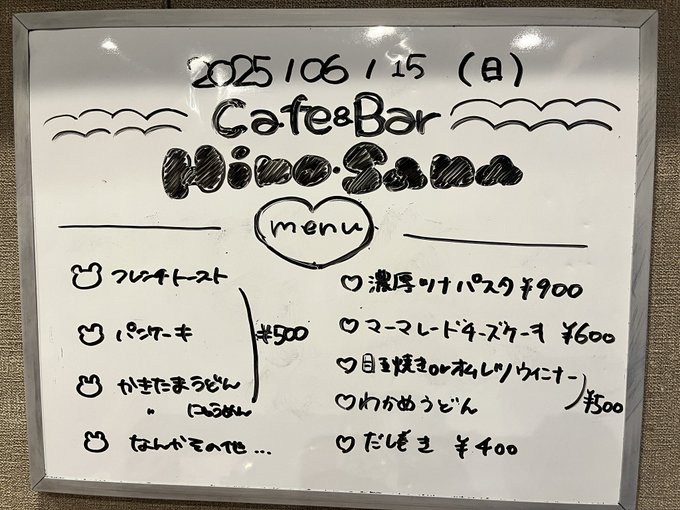 2025/06/15 (日)
Cafe&Bar
Hino・Sana
menu
フレンチトースト
パンケーキ
¥500
かきたまうどん
〃 にゅうめん
なんかその他…
濃厚ツナパスタ ¥900
マーマレードチーズケーキ ¥600
目玉焼きorオムレツ/ウィンナー
¥500
わかめうどん
だしまき ¥400